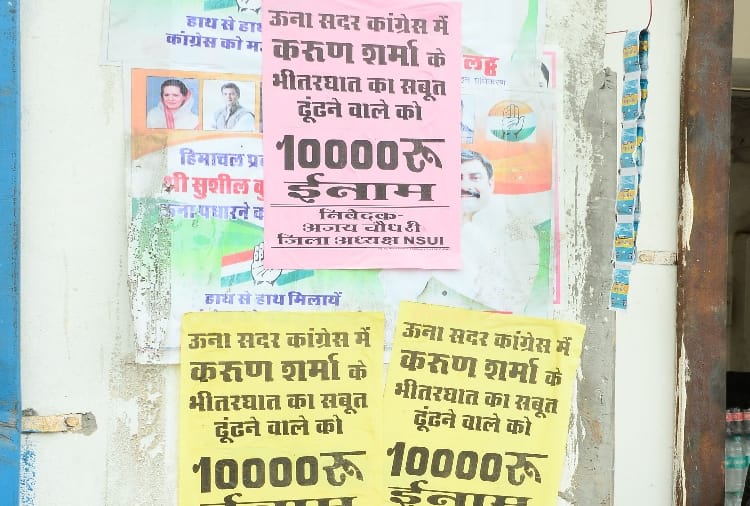 हाथ से हाथ
कांग्रेस को
ऊना सदर कांग्रेस में
करुण शर्मा के
भीतरघात का सबूत
ढूंढने वाले को
10000रू
ईनाम
निवेदक-
अजय चौधरी
जिला अध्यक्ष NSUI
हिमाचल
श्री सुशील
ऊना पधारने
हाथ से हाथ मिलायें
ऊना सदर कांग्रेस में
करुण शर्मा के
भीतरघात का सबूत
ढूंढने वाले को
10000रू
ईनाम
ऊना सदर कांग्रेस में
करुण शर्मा के
भीतरघात का सबूत
ढूंढने वाले को
10000रू
ईनाम